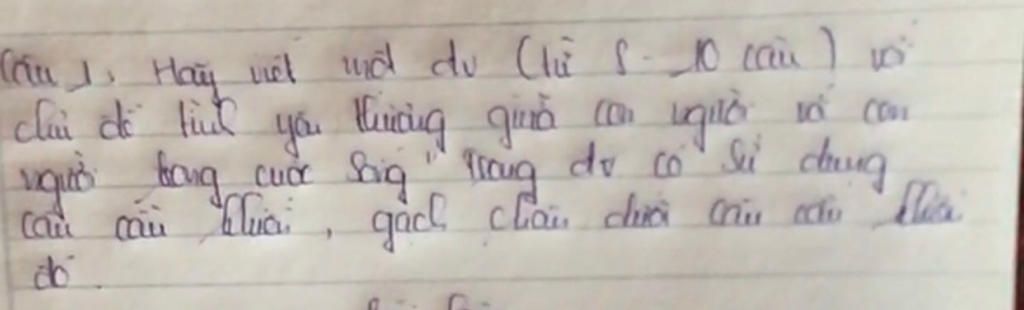 Câu 1, Hãy viết một đv (từ 8 - 10 câu) với
chủ đề tình yêu thương giữa con người với con
người trong cuộc sống" Trong đv có sử dụng
câu cầu khiến, gạch chân dưới câu cầu khiến
đó.